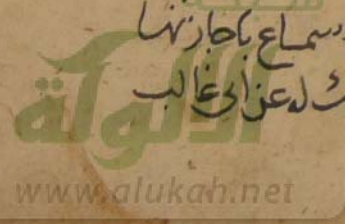 وسماع باجازتها
له عن ابي غالب
الألوكة
www.alukah.net